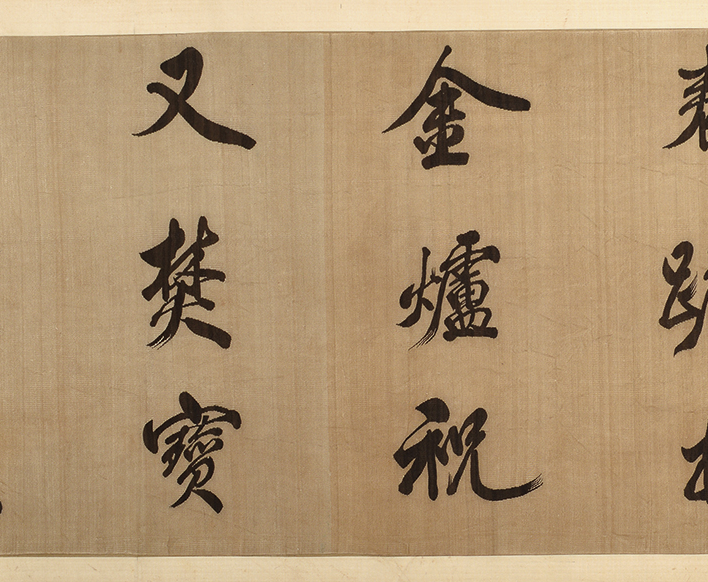 金爐祝
又焚寶